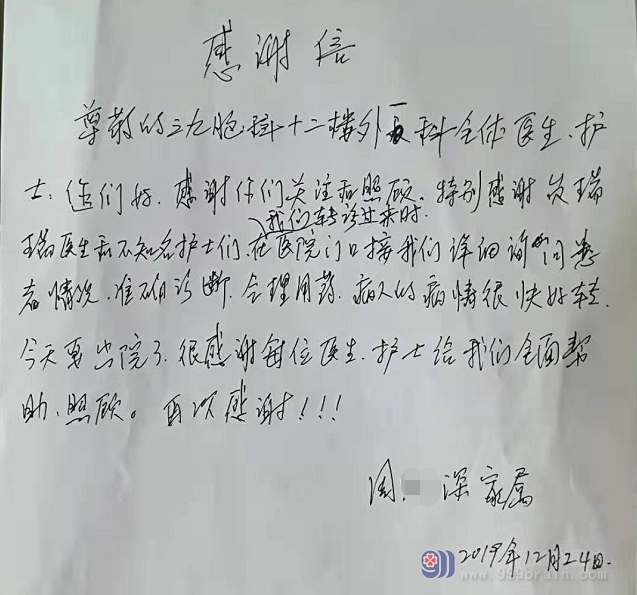 感谢信
尊敬的三九脑科十二楼外五科全体医生、护
士:您们好.感谢你们关注和照顾。特别感谢 瑞
我们转诊过来时.
瑞医生和不知名护士们,在医院门口接我们详细询问患
者情况,准确诊断.合理用药.病人的病情很快好转.
今天要出院了.很感谢每位医生.护士给我们全面帮
助、照顾。再次感谢!!!
周 深家属
2019年12月24日.
www.999brain.com